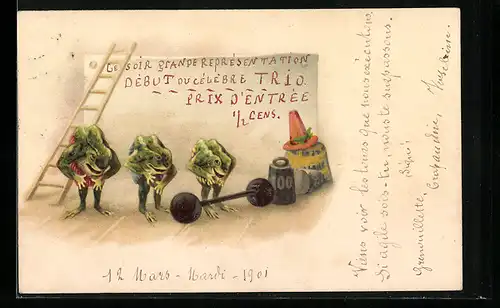 Ce soir grande représentation
Début du célèbre Trio
Prix d'entrée
1/2 Cens.
100
12 Mars - Mardi - 1901
Viens voir les tours que nous exécutons,
Si agile sois-tu, nous te surpassons.
Signé:
Grenouillette, Crapaudine,